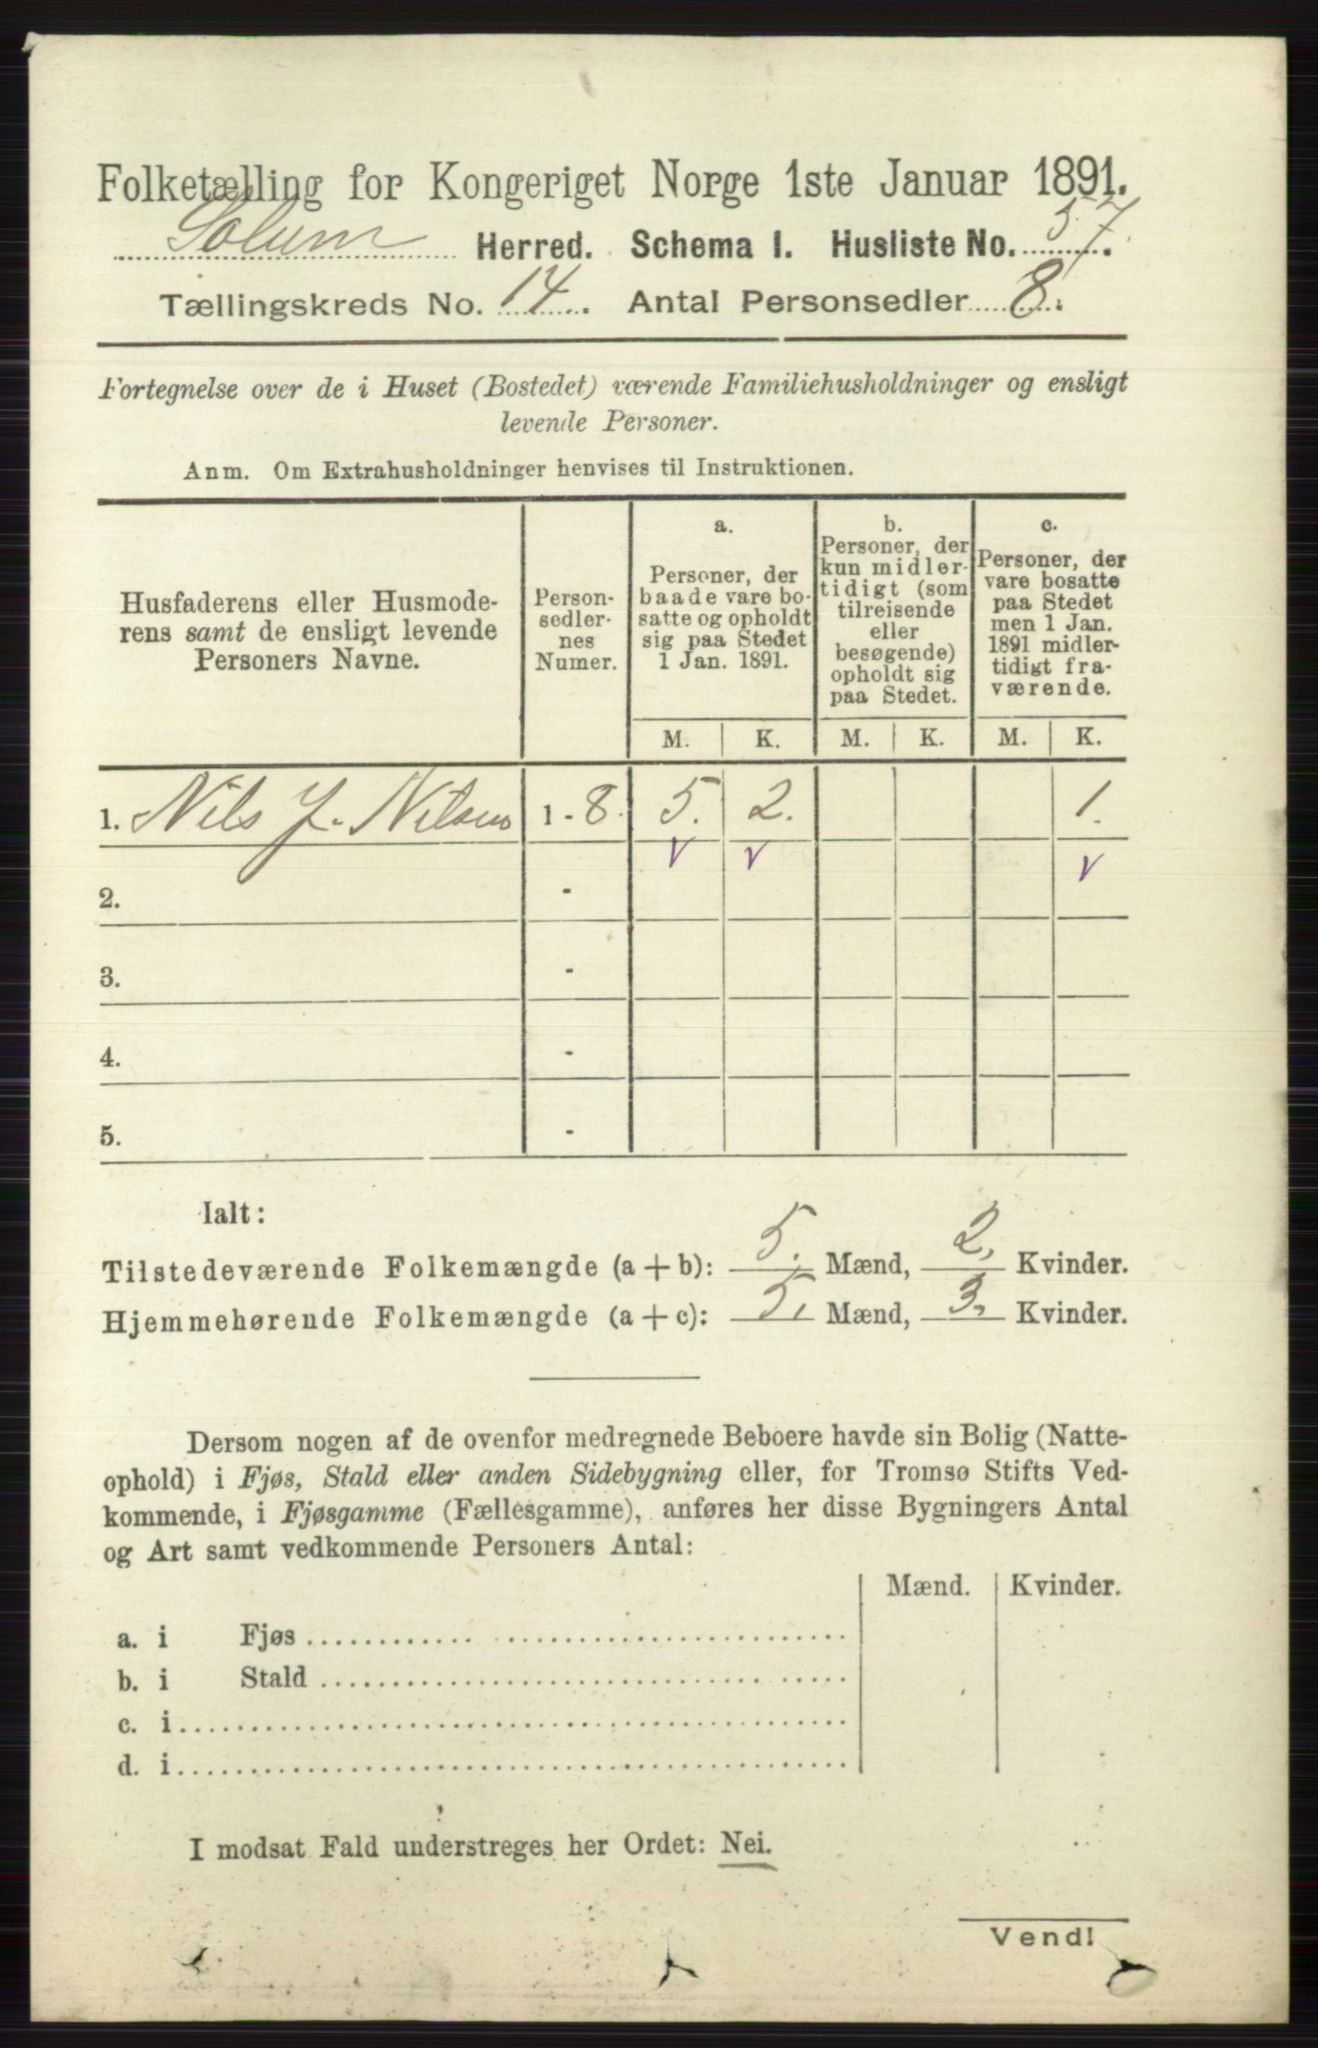 Folketælling for Kongeriget Norge 1ste Januar 1891.
Solum Herred. Schema I. Husliste No. 57.
Tællingskreds No. 14. Antal Personsedler 8.
Fortegnelse over de i Huset (Bostedet) værende Familiehusholdninger og ensligt
levende Personer.
Anm. Om Extrahusholdninger henvises til Instruktionen.
Husfaderens eller Husmode-
rens samt de ensligt levende
Personers Navne.
Person-
sedler-
nes
Numer.
a.
Personer, der
baade vare bo-
satte og opholdt
sig paa Stedet
1 Jan. 1891.
b.
Personer, der
kun midler-
tidigt (som
tilreisende
eller
besøgende)
opholdt sig
paa Stedet.
c.
Personer, der
vare bosatte
paa Stedet
men 1 Jan.
1891 midler-
tidigt fra-
værende.
M. K. M. K. M. K.
1. Nils J. Nilsen 1 - 8. 5. 2. 1.
v v v
2. -
3. -
4. -
5. -
Ialt:
Tilstedeværende Folkemængde (a + b): 5. Mænd, 2. Kvinder.
Hjemmehørende Folkemængde (a + c): 5. Mænd, 3. Kvinder.
Dersom nogen af de ovenfor medregnede Beboere havde sin Bolig (Natte-
ophold) i Fjøs, Stald eller anden Sidebygning eller, for Tromsø Stifts Ved-
kommende, i Fjøsgamme (Fællesgamme), anføres her disse Bygningers Antal
og Art samt vedkommende Personers Antal:
Mænd. Kvinder.
a. i Fjøs
b. i Stald
c. i
d. i
I modsat Fald understreges her Ordet: Nei.
Vend!